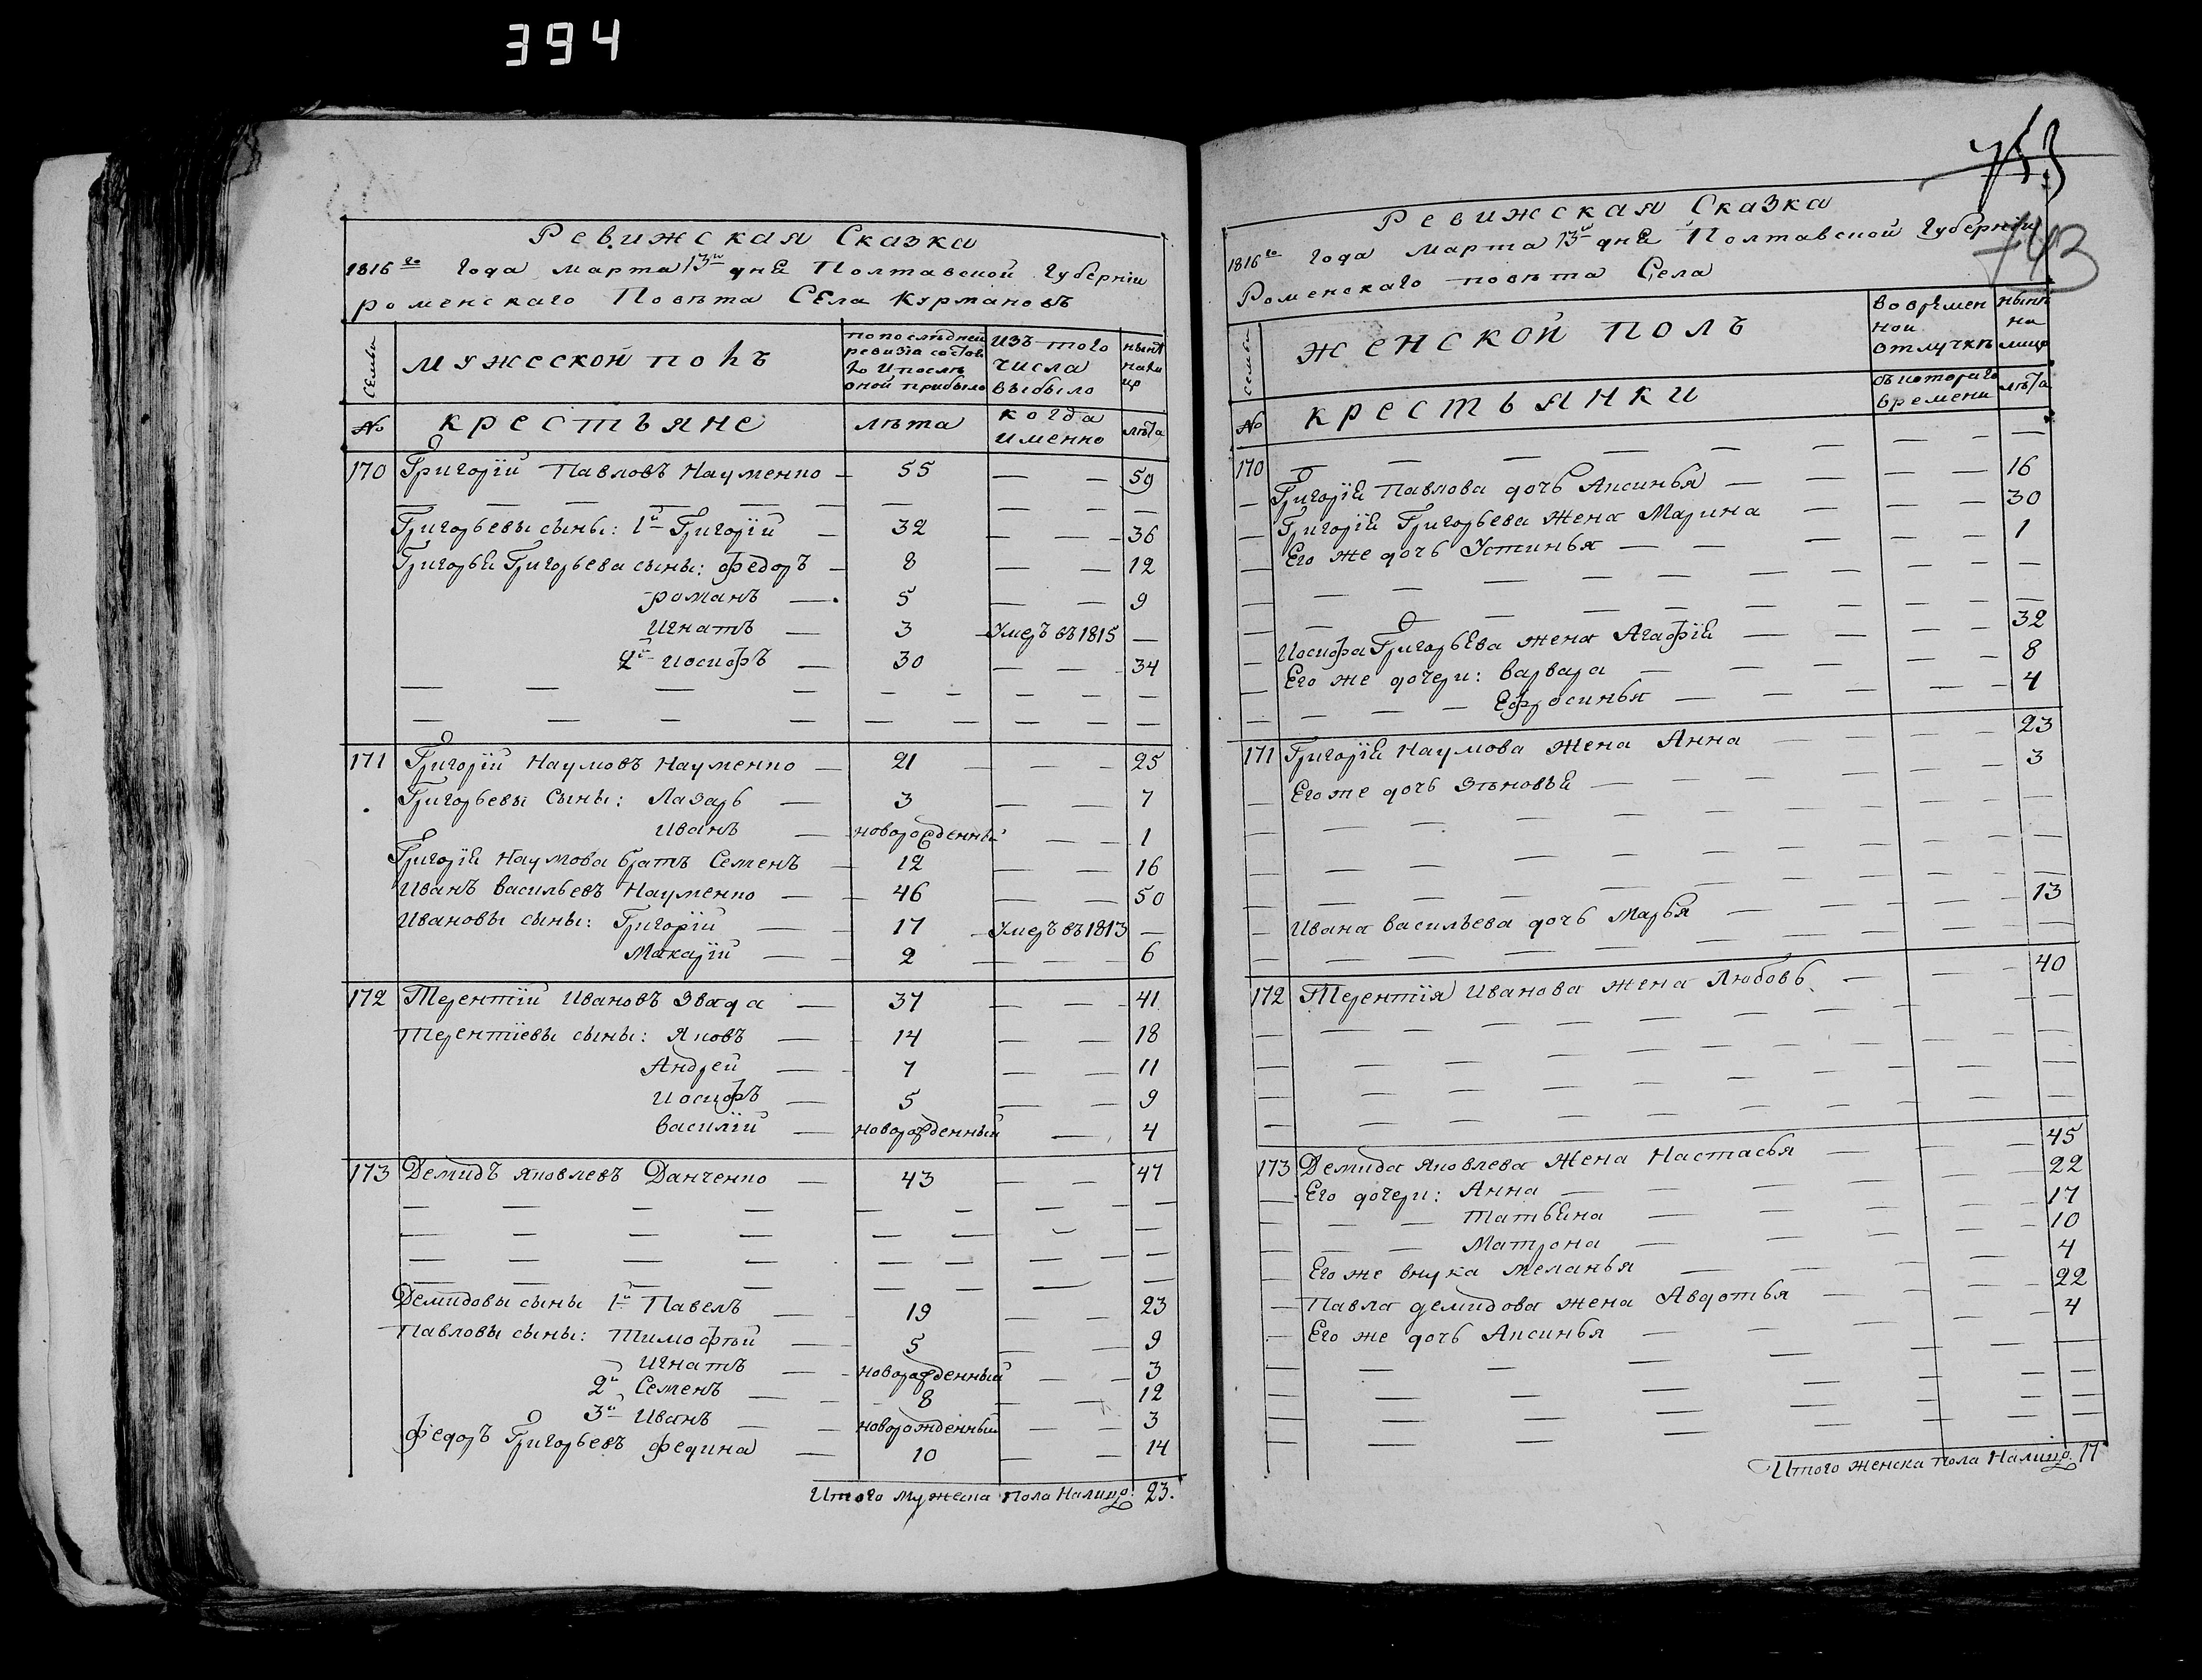 394
Ревижская Сказка
1816го года марта 13го дня Полтавской Губерніи
роменскаго Повѣта Села Курмановъ
Семьи
мужеской полъ
по последней ревизіи состояло и послѣ оной прибыло
изъ того числа выбыло
нынѣ на лицо
№ крестьяне лѣта когда именно лѣта
170 Григорій Павловъ Науменко — 55 — — 59
— — — — — — — —
Григорьевы сыны: 1й Григорій — 32 — — 36
Григорья Григорьева сыны: Федоръ — 8 — — 12
романъ — 5 — — 9
Игнатъ — 3 Умеръ въ 1815 —
2й иосифъ — 30 — — 34
— — — — — — — —
— — — — — — — —
171 Григорій Наумовъ Науменко — 21 — — 25
Григорьевы Сыны: Лазарь — 3 — — 7
Иванъ — новорожденный — — 1
Григорія Наумова братъ Семенъ — 12 — — 16
Иванъ васильевъ Науменко — 46 — — 50
Ивановы сыны: Григорій — 17 Умеръ въ 1813 —
Макарій — 2 — — 6
172 Терентій Ивановъ Звада — 37 — — 41
Терентіевы сыны: Яковъ — 14 — — 18
Андрей — 7 — — 11
иосифъ — 5 — — 9
василій — новорожденный — 4
173 Демидъ яковлевъ Данченко — 43 — — 47
— — — — — — — —
— — — — — — — —
— — — — — — — —
— — — — — — — —
Демидовы сыны 1й Павелъ — 19 — — 23
Павловы сыны: Тимофѣй — 5 — — 9
Игнатъ — новорожденный — — 3
2й Семенъ — 8 — — 12
3й Иванъ — новорожденный — — 3
Федоръ Григорьевъ Федина — 10 — — 14
Итого мужеска пола Налицо 23.
753
743
Ревижская Сказка
1816го года марта 13го дня Полтавской Губерніи
Роменскаго повѣта Села
Семьи
женской полъ
во времен ной отлучкѣ
нынѣ на лицо
№ крестьянки съ котораго времени лѣта
170 — — — — — — — —
— Григорія Павлова дочь Аксинья — — — 16
— Григорія Григорьева жена Марина — — — 30
— Его же дочь Устинья — — — — 1
— — — — — — — —
— — — — — — — —
— Иосифа Григорьева жена Агафія — — — 32
— Его же дочери: варвара — — — 8
— — — — Ефросинья — — — 4
171 Григорія Наумова жена Анна — — — 23
— Его же дочь Зѣновья — — — 3
— — — — — — — —
— — — — — — — —
— — — — — — — —
— Ивана васильева дочь Марья — — — 13
— — — — — — — —
172 Терентія Иванова жена Любовь — — — 40
— — — — — — — —
— — — — — — — —
— — — — — — — —
— — — — — — — —
173 Демида яковлева жена Настасья — — — 45
— Его дочери: Анна — — — 22
— — — Татьяна — — — 17
— — — Матрона — — — 10
— Его же внука меланья — — — 4
— Павла демидова жена Авдотья — — — 22
— Его же дочь Аксинья — — — 4
— — — — — — — —
— — — — — — — —
— — — — — — — —
— — — — — — — —
Итого женска пола Налицо 17